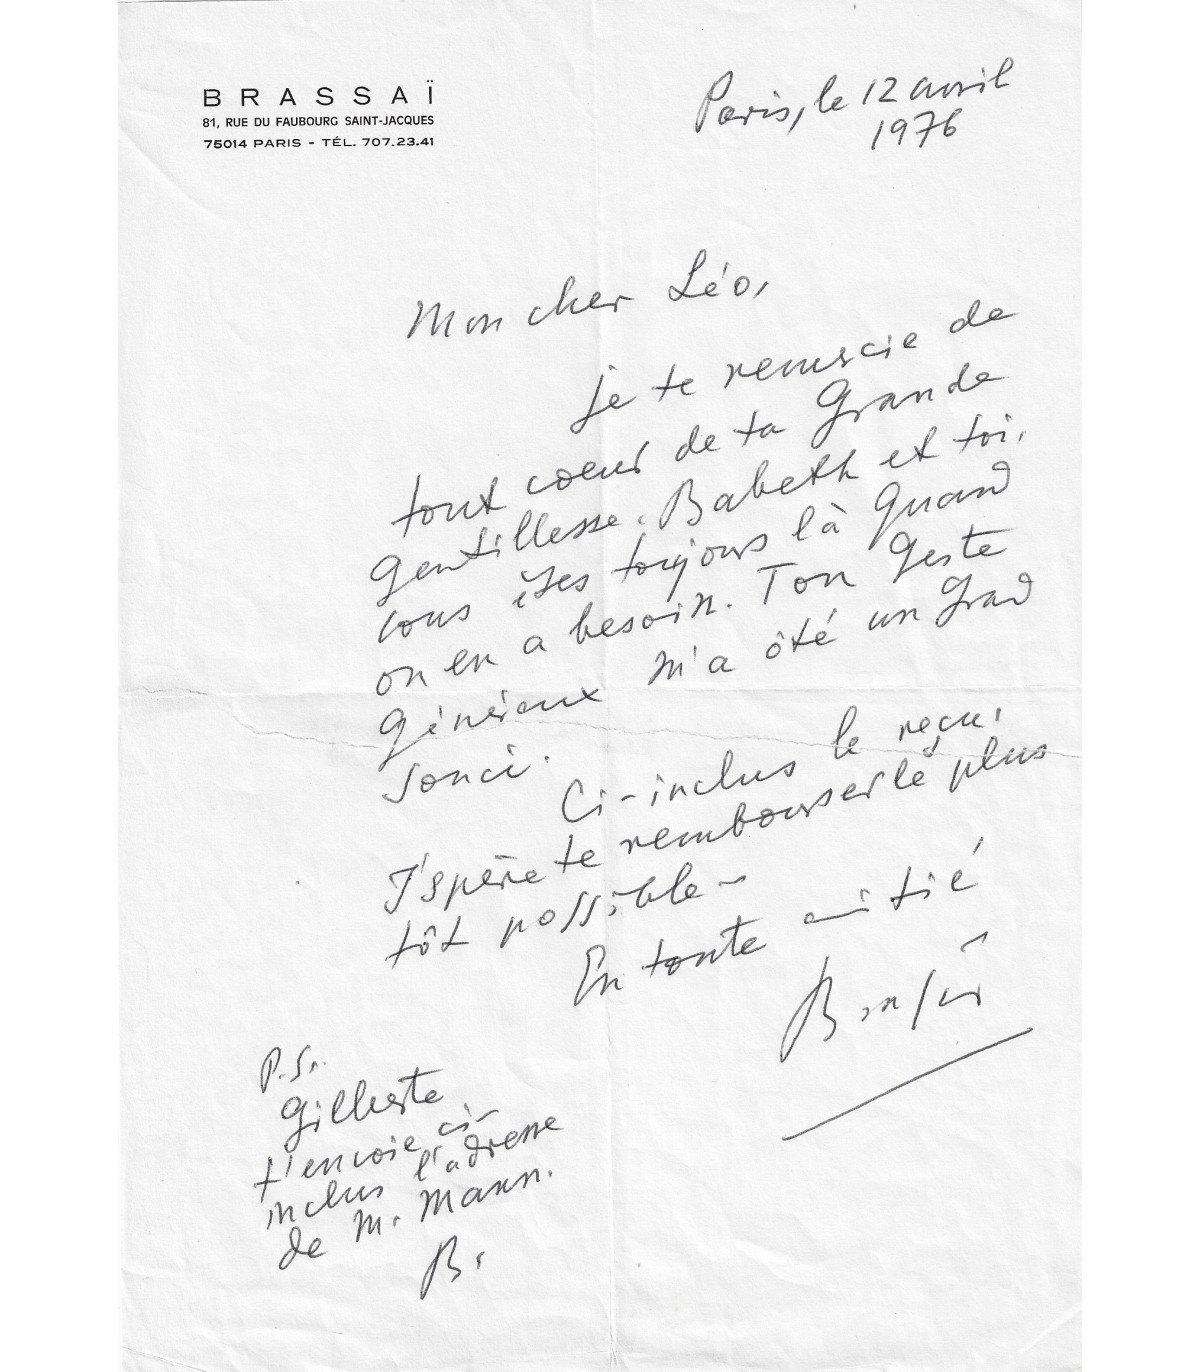 BRASSAÏ
81, RUE DU FAUBOURG SAINT-JACQUES
75014 PARIS - TÉL. 707.23.41
Paris, le 12 avril
1976
Mon cher Léo,
je te remercie de
tout coeur de ta grande
gentillesse. Babeth et toi,
vous êtes toujours là quand
on en a besoin. Ton geste
généreux m'a ôté un grand
souci.
Ci-inclus le reçu.
J'spère te rembourser le plus
tôt possible -
En toute amitié
Brassaï
P.S.
Gilberte
t'envoie ci-
inclus l'adresse
de M. Mann.
B.